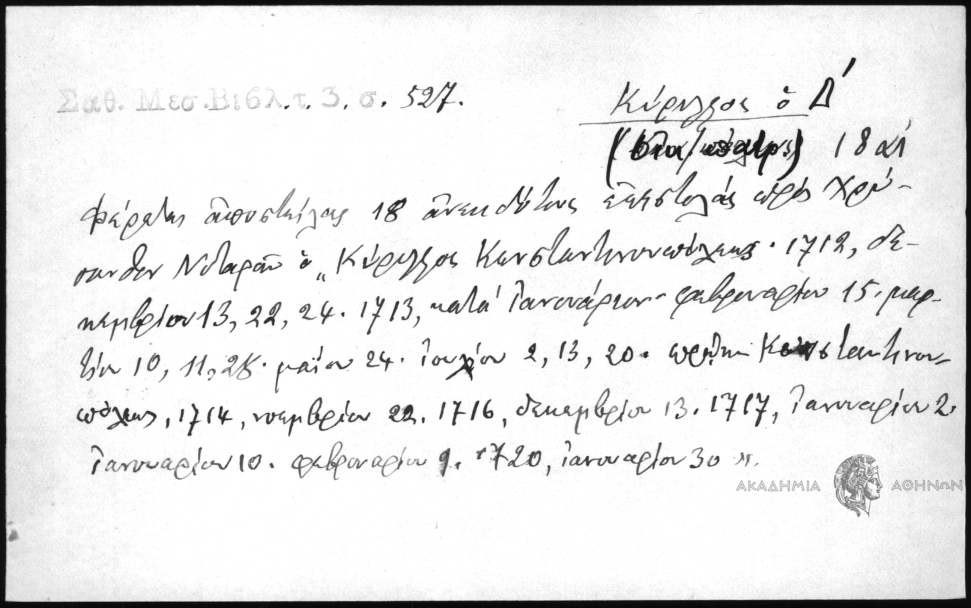 Σαθ. Μεσ. Βιβλ. τ. 3. σ. 527.
Κύριλλος ὁ Δ΄
18 αἰ
φέρεται ἀποστείλας 18 ἀνεκδότους ἐπιστολάς πρός Χρύ-
σανθον Νοταρᾶν ὁ „Κύριλλος Κωνσταντινουπόλεως. 1712, δε-
κεμβρίου 13, 22, 24. 1713, κατά ἰανουάριον- φεβρουαρίου 15. μαρ-
τίου 10, 11, 28. μαΐου 24. ἰουλίου 2, 13, 20. πρώην Κωνσταντινου-
πόλεως, 1714, νοεμβρίου 22. 1716, δεκεμβρίου 13. 1717, ἰανουαρίου 2.
ἰανουαρίου 10. φεβρουαρίου 9. 1720, ἰανουαρίου 30
ΑΚΑΔΗΜΙΑ ΑΘΗΝΩΝ